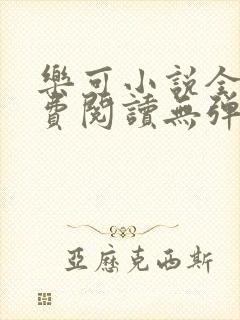 樂可小說全
費閱讀無彈
亞歷克西斯